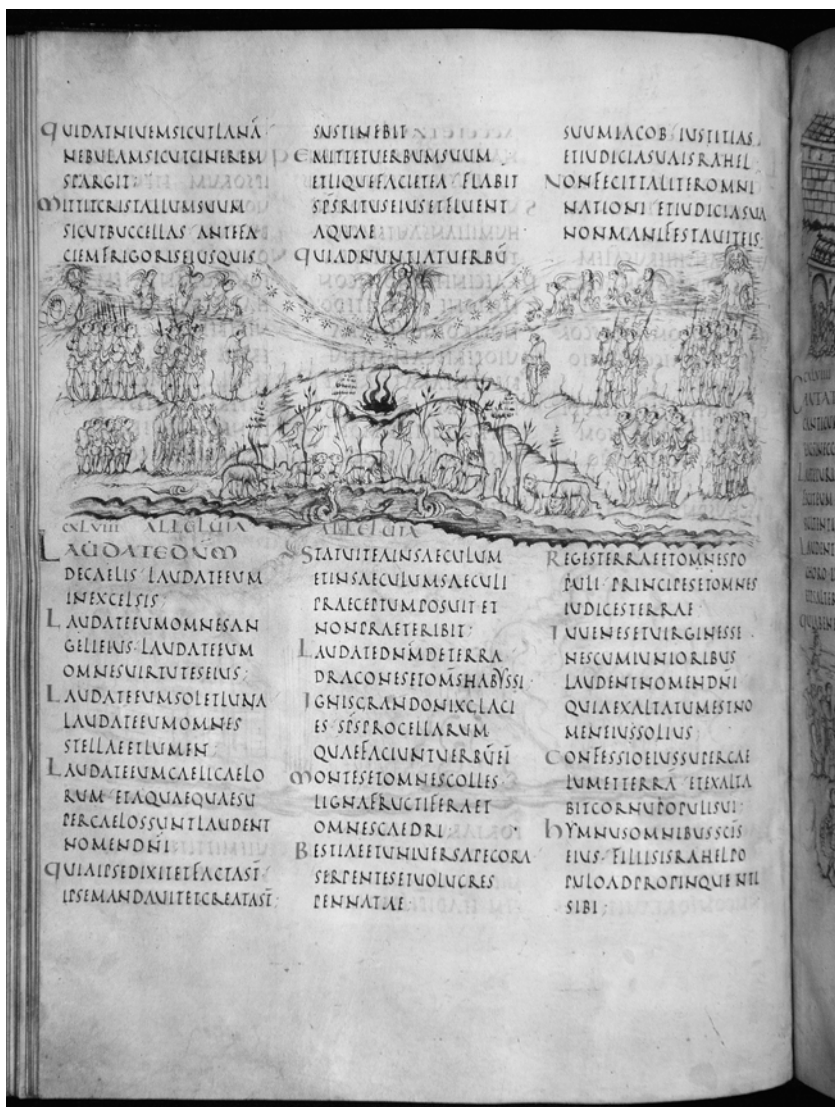 QUI DAT NIVEM SICUT LANĀ
NEBULAM SICUT CINEREM
SPARGIT:
MITTIT CRISTALLUM SUUM
SICUT BUCCELLAS ANTE FA
CIEM FRIGORIS EIUS QUIS
SUSTINEBIT
EMITTET UERBUM SUUM
ET LIQUEFACIET EA FLABIT
SPSRITUS EIUS ET FLUENT
AQUAE
QUI ADNUNTIAT UERBŪ
SUUM IACOB IUSTITIAS
ET IUDICIA SUA ISRAHEL
NON FECIT TALITER OMNI
NATIONI ET IUDICIA SUA
NON MANIFESTAVIT EIS:
CXLVIII ALLELUIA ALLELUIA
LAUDATE DNM
DE CAELIS LAUDATE EUM
IN EXCELSIS:
LAUDATE EUM OMNES AN
GELI EIUS LAUDATE EUM
OMNES UIRTUTES EIUS:
LAUDATE EUM SOL ET LUNA
LAUDATE EUM OMNES
STELLAE ET LUMEN:
LAUDATE EUM CAELI CAELO
RUM ET AQUAE QUAE SU
PER CAELOS SUNT LAUDENT
NOMEN DNI
QUIA IPSE DIXIT ET FACTA ST
IPSE MANDAVIT ET CREATA ST:
STATUIT EA IN SAECULUM
ET IN SAECULUM SAECULI
PRAECEPTUM POSUIT ET
NON PRAETERIBIT:
LAUDATE DNM DE TERRA
DRACONES ET OMS HABYSSI
IGNIS GRANDO NIX GLACI
ES SPS PROCELLARUM
QUAE FACIUNT UERBŪ EI
MONTES ET OMNES COLLES
LIGNA FRUCTIFERA ET
OMNES CAEDRI:
BESTIAE ET UNIVERSA PECORA
SERPENTES ET VOLUCRES
PENNATAE:
REGES TERRAE ET OMNES PO
PULI PRINCIPES ET OMNES
IUDICES TERRAE
IUVENES ET VIRGINES SE
NES CUM IUNIORIBUS
LAUDENT NOMEN DNI
QUIA EXALTATUM EST NO
MEN EIUS SOLIUS
CONFESSIO EIUS SUPER CAE
LUM ET TERRĀ ET EXALTA
BIT CORNU POPULI SUI:
HYMNUS OMNIBUS SCIS
EIUS FILIIS ISRAHEL PO
PULO ADPROPINQUENTI
SIBI: